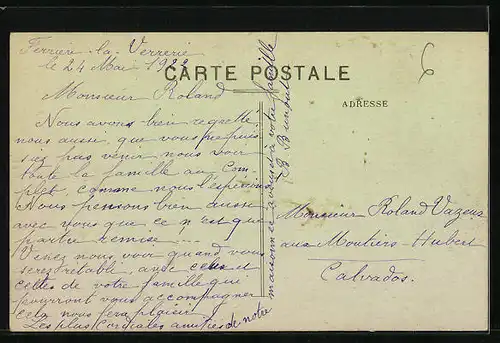 Ferrière-la-Verrerie
le 24 Mai 1922
CARTE POSTALE
ADRESSE
6
Monsieur Roland
Nous avons bien regretté
nous aussi, que vous ne puis
siez pas venir nous voir
toute la famille au Com-
plet, comme nous l'espérions
Nous pensons bien aussi
avec vous que ce n'est que
partie remise ...
Venez nous voir quand vous
serez rétabli, avec celui et
celles de votre famille qui
pourront vous accompagner
cela nous fera plaisir!
Les plus Cordiales amitiés de notre
maisonnée à vous et à votre famille
Monsieur Roland Vazeux
aux Moutiers-Hubert
Calvados.